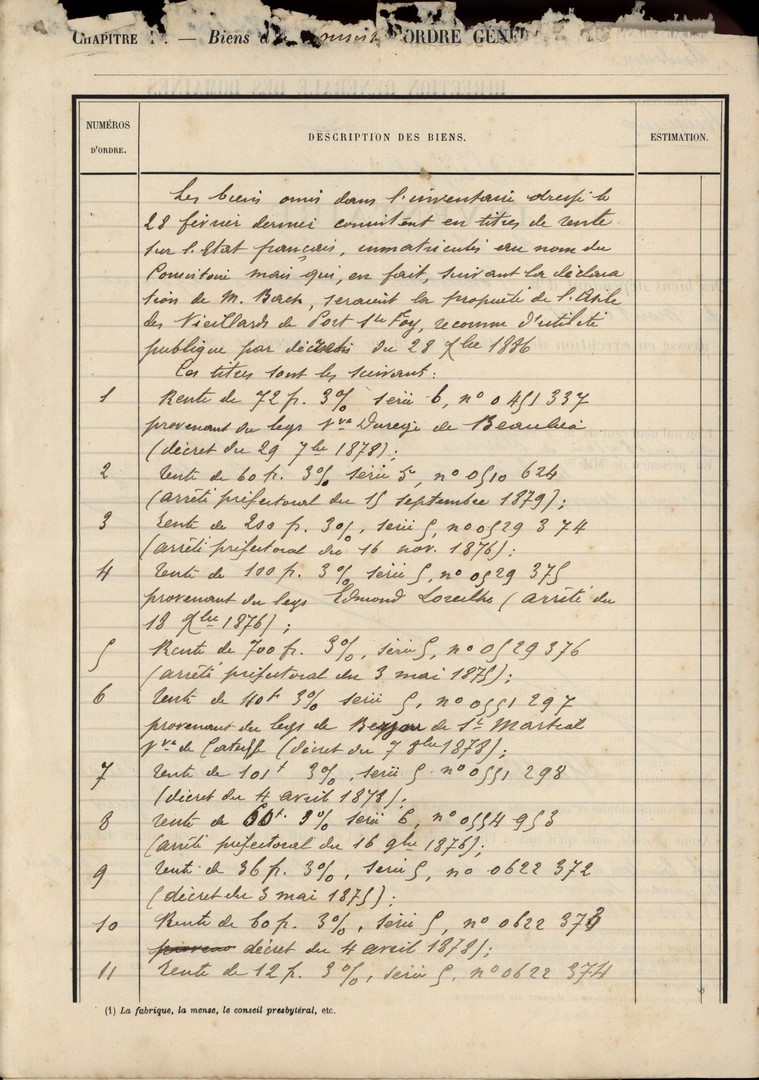 CHAPITRE — Biens d ORDRE GÉNÉ
NUMÉROS D'ORDRE.
DESCRIPTION DES BIENS.
ESTIMATION.
Les biens omis dans l'inventaire dressé le
28 février dernier consistent en titres de rente
sur l'Etat français, immatriculés au nom du
Consistoire mais qui, en fait, suivant la déclara
tion de M. Bach, seraient la propriété de l'Asile
des Vieillards de Port Ste Foy, reconnu d'utilité
publique par décret du 28 Xbre 1886
Ces titres sont les suivants:
1 Rente de 72 f. 3%, série 6, no 0451 337
provenant du legs Vve de Beaulieu
(décret du 29 7bre 1878);
2 rente de 60 f. 3% série 5, no 0510 624
(arrêté préfectoral du 15 septembre 1879);
3 rente de 200 f. 3%, série 5, no 0529 374
(arrêté préfectoral du 16 nov. 1876);
4 rente de 100 f. 3%, série 5, no 0529 375
provenant du legs Edmond Loreilhe (arrêté du
18 Xbre 1876);
5 Rente de 700 fr. 3%, série 5, no 0529 376
(arrêté préfectoral du 3 mai 1875);
6 rente de 40f 3% série 5, no 0551 297
provenant du legs de de St Martial
Vve de (décret du 7 8bre 1878);
7 rente de 101f 3%, série 5 no 0551 298
(décret du 4 avril 1878);
8 rente de 60f. 3% série 6, no 0554 953
(arrêté préfectoral du 16 9bre 1876);
9 rente de 36 f. 3%, série 5, no 0622 372
(décret du 3 mai 1875);
10 Rente de 60 f. 3%, série 5, no 0622 373
décret du 4 avril 1878);
11 rente de 12 f. 3%, série 5, no 0622 374
(1) La fabrique, la mense, le conseil presbytéral, etc.